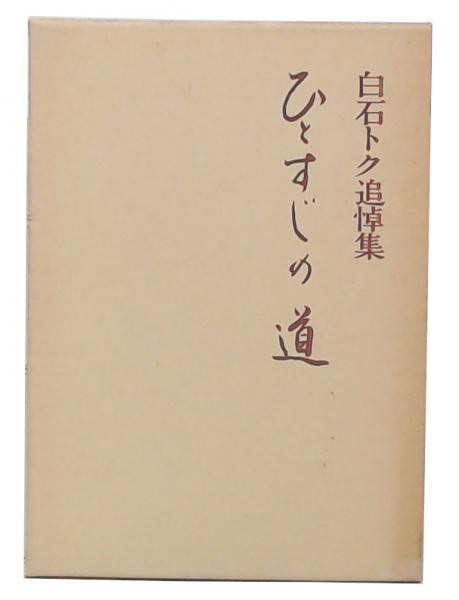 白石トク追悼集
ひとすじの道